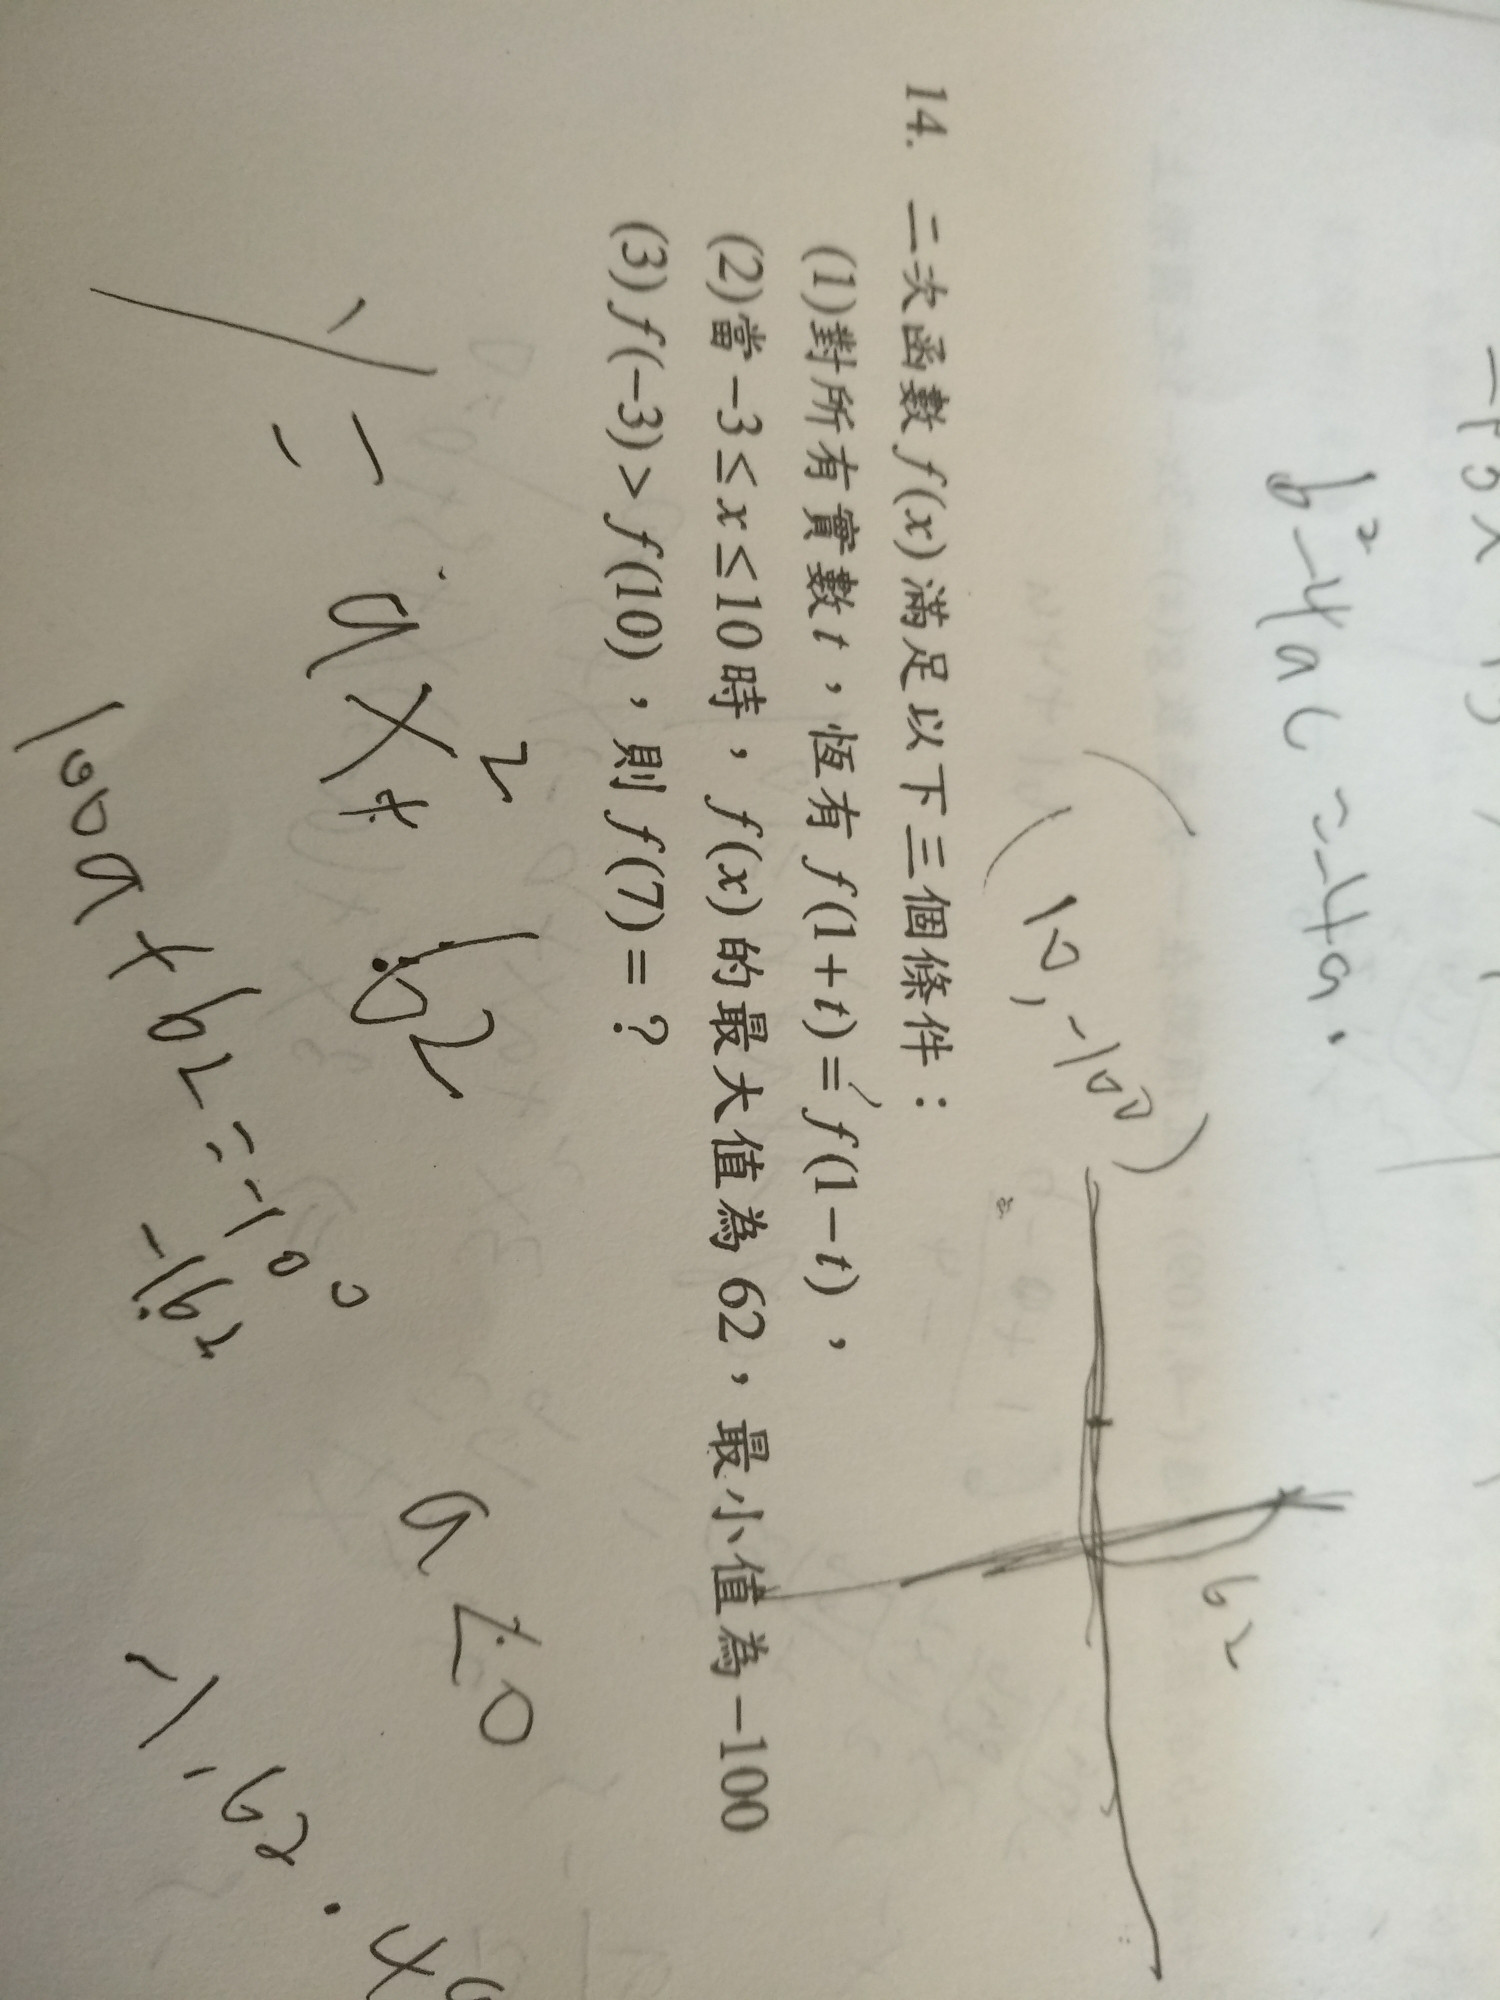 b²-4ac=-4a.
(10,-100)
62
14. 二次函數f(x)滿足以下三個條件：
(1)對所有實數t，恆有f(1+t)=f(1-t)，
(2)當-3≤x≤10時，f(x)的最大值為62，最小值為-100
(3)f(-3)>f(10)，則f(7)=？
y=ax²+62
a<0
100a+62=-100
-162